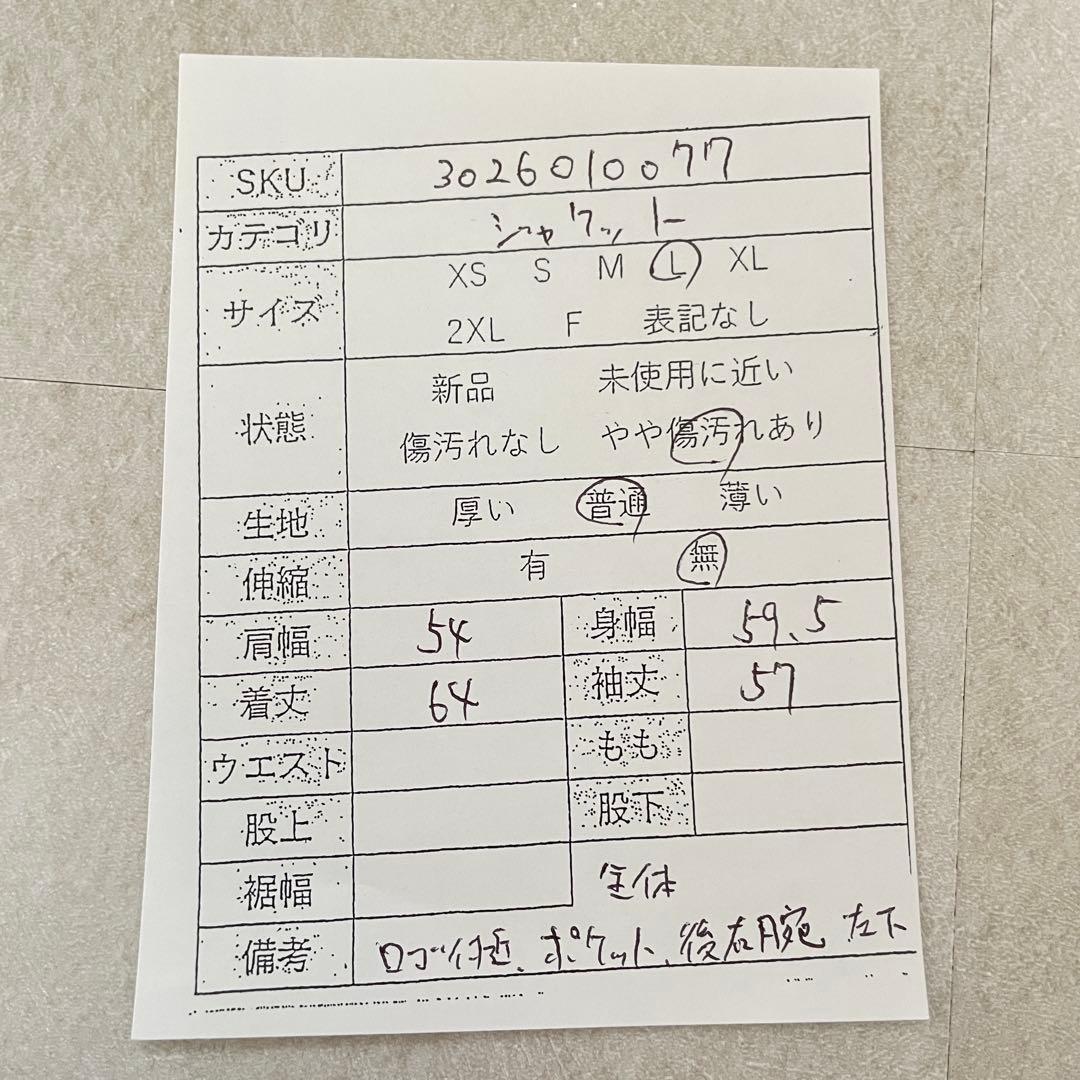 SKU 3026010077
カテゴリ ジャケット
サイズ XS S M L XL
2XL F 表記なし
状態 新品 未使用に近い
傷汚れなし やや傷汚れあり
生地 厚い 普通 薄い
伸縮 有 無
肩幅 54 身幅 59.5
着丈 64 袖丈 57
ウエスト もも
股上 股下
裾幅 全体
備考 ロゴ付近、ポケット、後右腕 左下